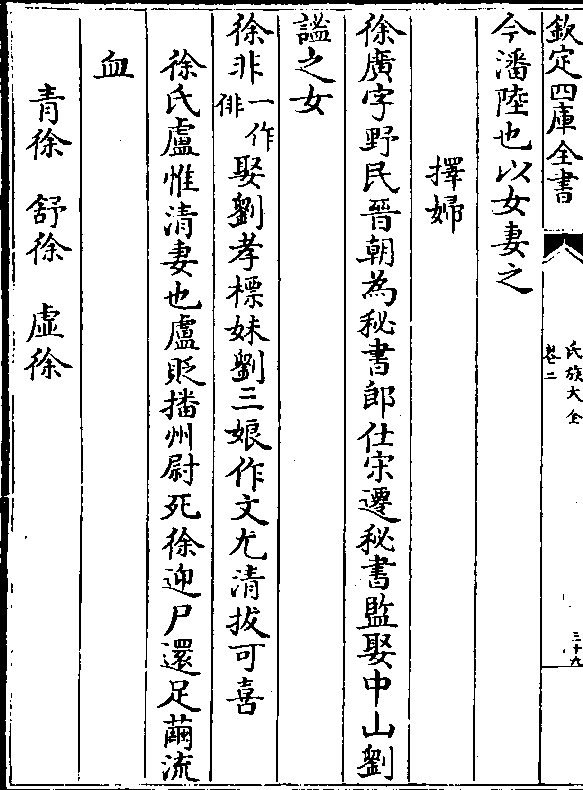 欽定四庫全書
氏族大全
卷二
三十九
今潘陸也以女妻之
擇婦
徐廣字野民晉朝為秘書郎仕宋遷秘書監娶中山劉
謐之女
徐非一作俳娶劉孝標妹劉三娘作文尤清拔可喜
徐氏盧惟清妻也盧貶播州尉死徐迎尸還足繭流
血
青徐 舒徐 虛徐